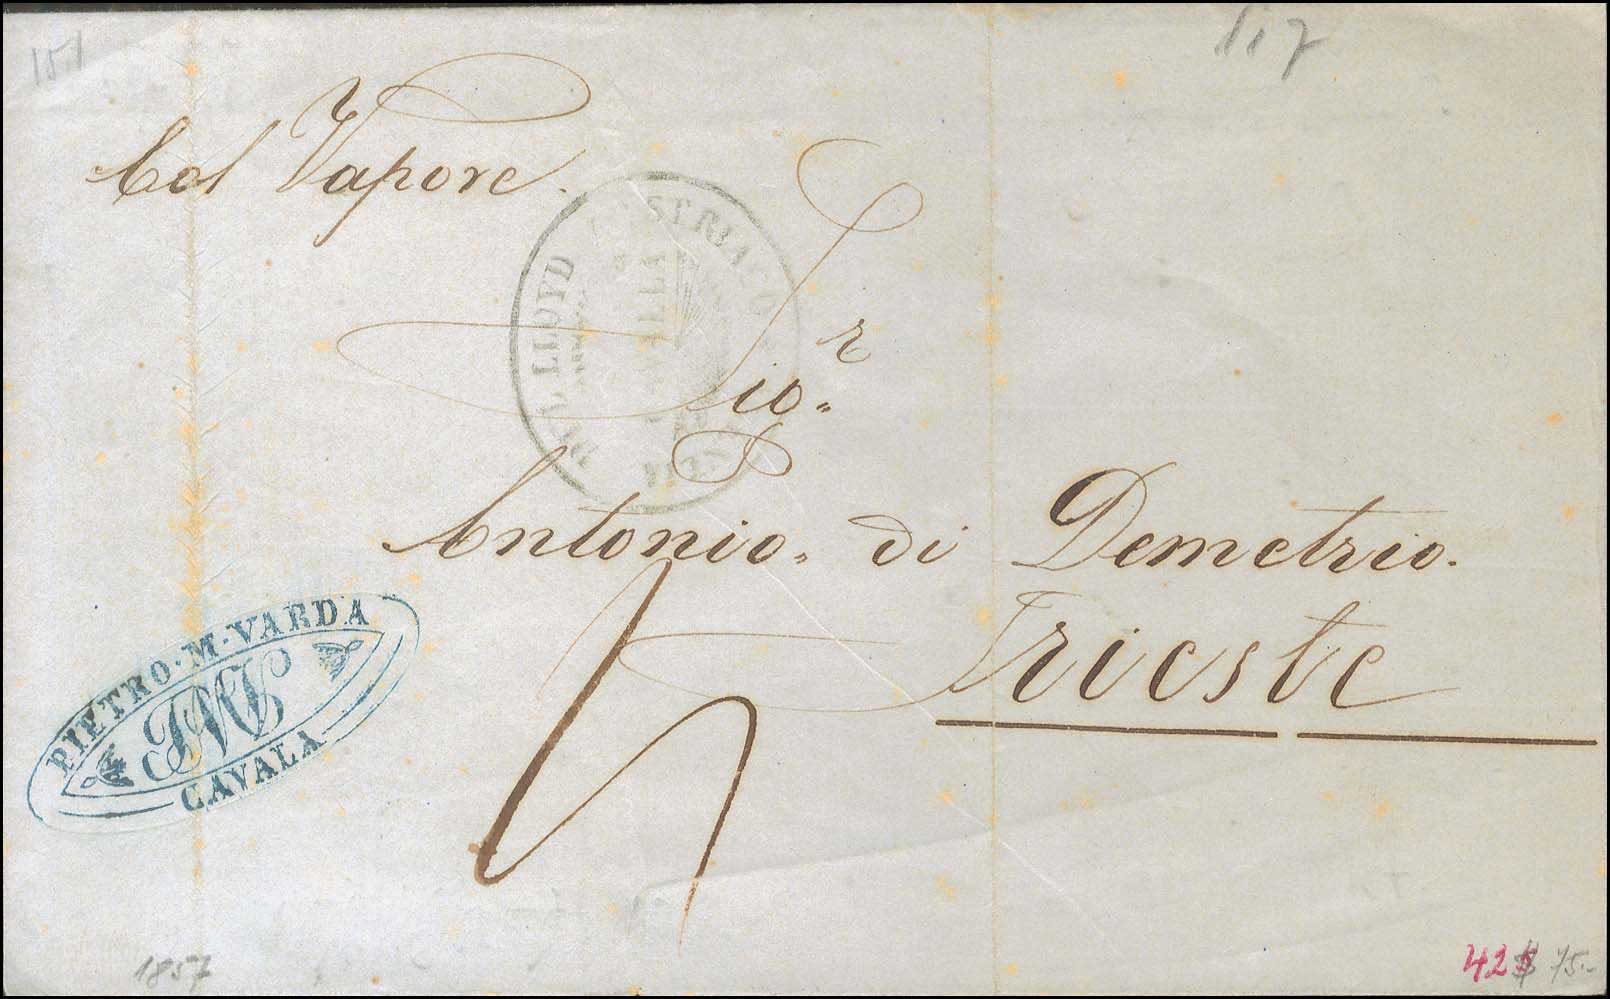 151
Col Vapore.
LLOYD AUSTRIACO
Sior
Antonio. di Demetrio.
Trieste
PIETRO·M·VARDA
PMV
CAVALA
1857
42
75.-